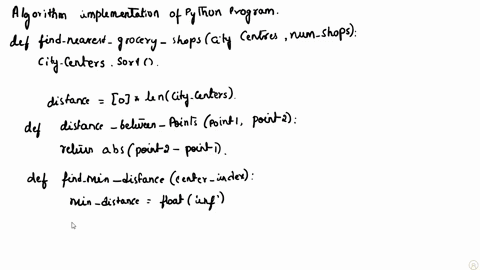 Algorithm implementation of Python Program.
def find_nearest_grocery_shops(City Centres, num_shops):
City_Centers. Sort().
distance = [0] * len(City_Centers).
def distance_between_Points (point1, point2):
return abs (point2 - point1).
def find_min_distance (center_index):
min_distance = float('inf')